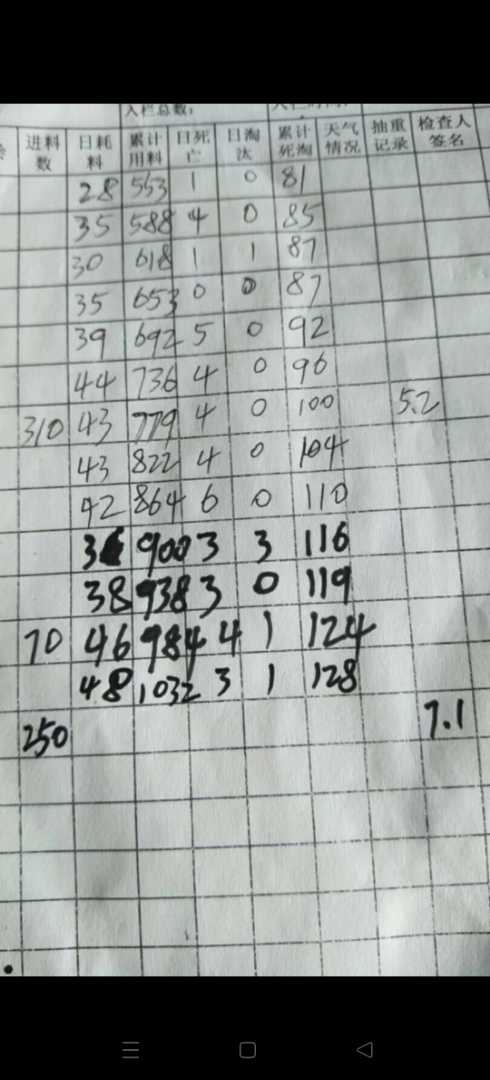 入栏总数：
进料数 日耗料 累计用料 日死亡 日淘汰 累计死淘 天气情况 抽重记录 检查人签名
28 553 1 0 81
35 588 4 0 85
30 618 1 1 87
35 653 0 0 87
39 692 5 0 92
44 736 4 0 96
310 43 779 4 0 100 5.2
43 822 4 0 104
42 864 6 0 110
36 900 3 3 116
38 938 3 0 119
70 46 984 4 1 124
48 1032 3 1 128
250 7.1